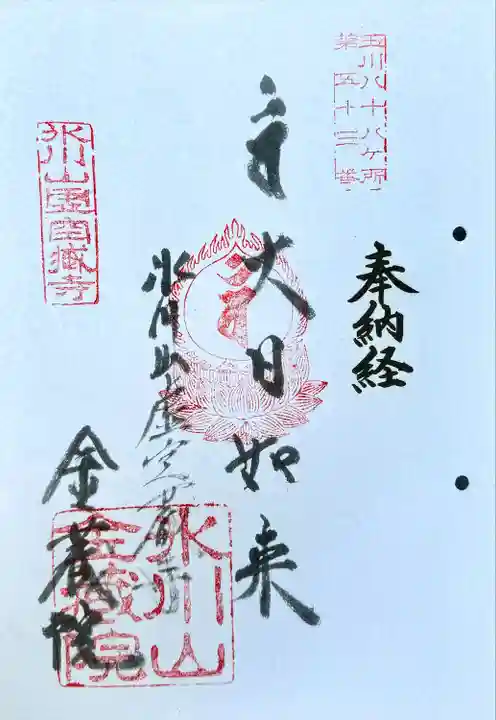 玉川八十八ヶ所
第五十三番
奉納経
大日如来
氷川山虚空蔵寺
金蔵院
氷川山虚空蔵寺
氷川山
金蔵院